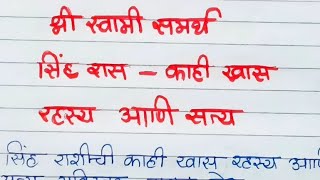 श्री स्वामी समर्थ
सिंह रास – काही खास
रहस्य आणि सत्य
सिंह राशीची काही खास रहस्य आणि